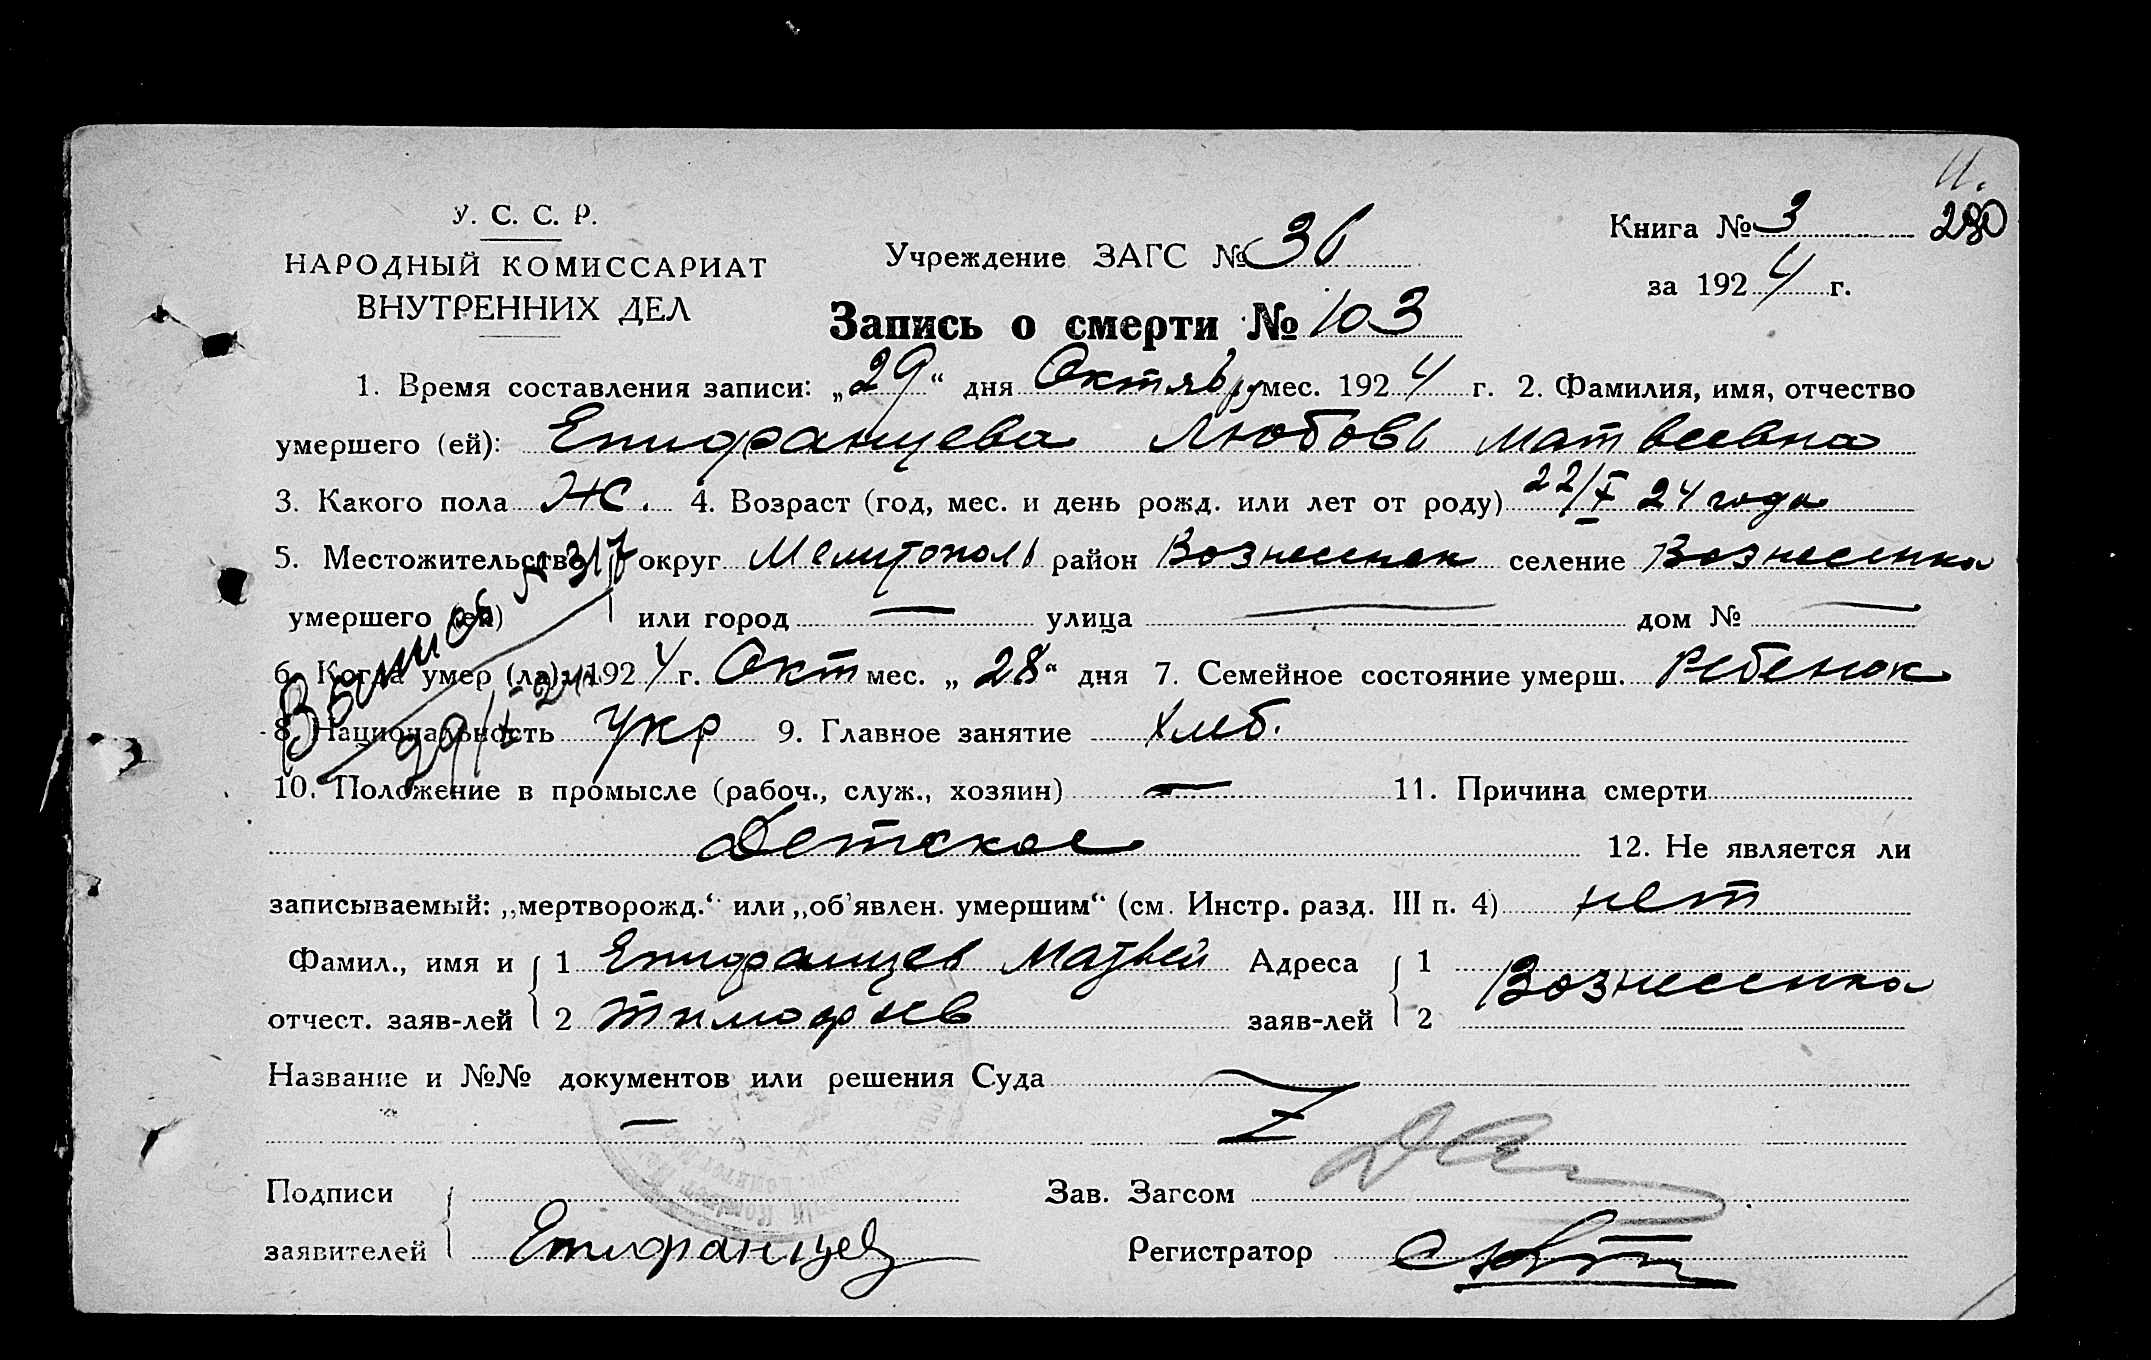 11.
280
У. С. С. Р.
НАРОДНЫЙ КОМИССАРИАТ
ВНУТРЕННИХ ДЕЛ
Учреждение ЗАГС № 36
Книга № 3
за 1924 г.
Запись о смерти № 103
1. Время составления записи: „29“ дня Октябрь мес. 1924 г. 2. Фамилия, имя, отчество
умершего (ей): Епифанцева Любовь Матвеевна
3. Какого пола Ж. 4. Возраст (год, мес. и день рожд. или лет от роду) 22/X 24 года
5. Местожительство округ Мелитополь район Вознесенск селение Вознесенка
умершего (ей) или город — улица — дом № —
6. Когда умер (ла): 1924 г. Окт мес. „28“ дня 7. Семейное состояние умерш. Ребенок
8. Национальность Укр 9. Главное занятие Хлеб.
Выпись № 317
29/X-24
10. Положение в промысле (рабоч., служ., хозяин) — 11. Причина смерти
Детская 12. Не является ли
записываемый: „мертворожд.“ или „об'явлен. умершим“ (см. Инстр. разд. III п. 4) нет
Фамил., имя и 1 Епифанцев Матвей Адреса 1 Вознесенка
отчест. заяв-лей 2 Тимофеев заяв-лей 2
Название и №№ документов или решения Суда
—
Подписи Зав. Загсом
заявителей Епифанцев Регистратор